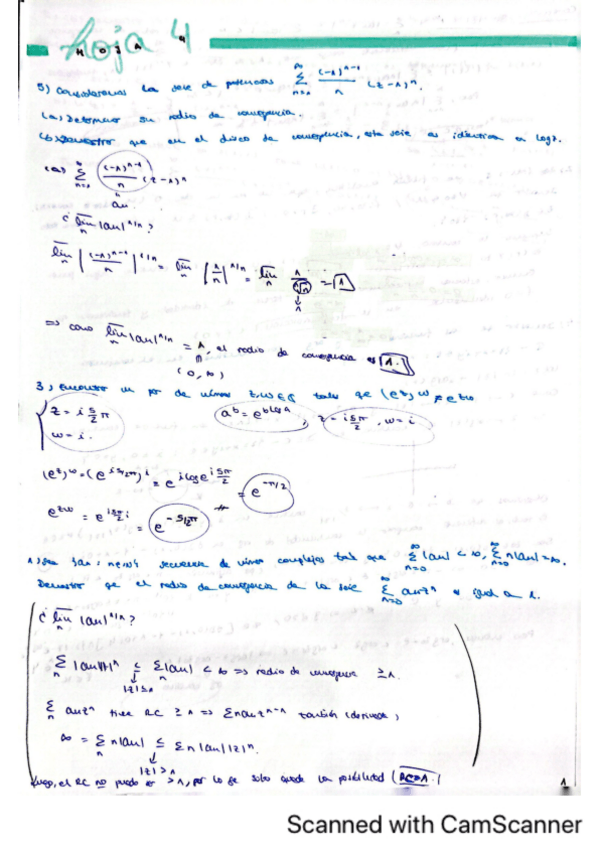 Hoja 4
HOJA 4
5) Consideramos la serie de potencias ∑_{n=1}^∞ (-1)^{n-1}/n (z-1)^n.
(a) Determinar su radio de convergencia.
(b) Demostrar que en el disco de convergencia, esta serie es idéntica a log z.
(a) ∑_{n=1}^∞ (-1)^{n-1}/n (z-1)^n
an
¿ lim_n |an|^{1/n}?
lim_n |(-1)^{n-1}/n|^{1/n} = lim_n |1/n|^{1/n} = lim_n 1/ⁿ√n = 1
↓
1
⇒ como lim_n |an|^{1/n} = 1, el radio de convergencia es 1.
(0,∞)
3) Encontrar un par de números z,w∈ℂ tales que (e^z)^w ≠ e^{zw}
z = i 5/2 π
w = i.
a^b = e^{b log a}, z = i 5π/2, w = i
(e^z)^w = (e^{i 5/2 π})^i = e^{i log e^{i 5π/2}} = e^{-π/2}
e^{zw} = e^{i 5π/2 i} = e^{-5/2 π}
1) Sea {an: n∈ℕ} secuencia de números complejos tal que ∑_{n=0}^∞ |an| < ∞, ∑_{n=0}^∞ n|an| = ∞.
Demostrar que el radio de convergencia de la serie ∑_{n=0}^∞ an z^n es igual a 1.
¿ lim_n |an|^{1/n}?
∑_n |an||z|^n ≤ ∑_n |an| < ∞ ⇒ radio de convergencia ≥ 1.
↓
|z|≤1
∑_n an z^n tiene RC ≥ 1 ⇒ ∑ n an z^{n-1} también (derivada)
∞ = ∑_n n|an| ≤ ∑ n|an||z|^n.
↓
|z|>1
Luego, el RC no puede ser >1, por lo que solo queda la posibilidad RC=1.
1
Scanned with CamScanner